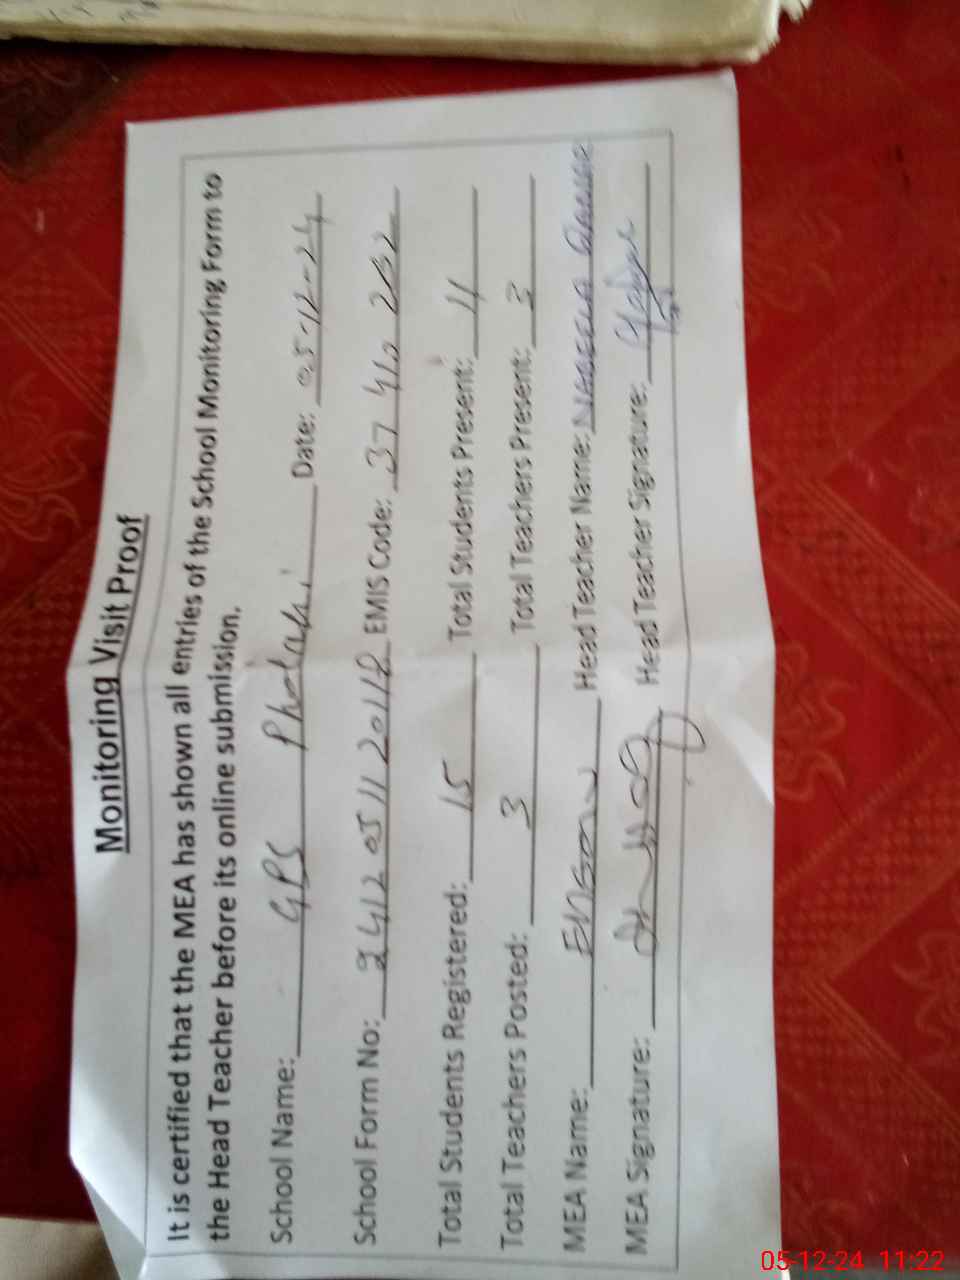 Monitoring Visit Proof
It is certified that the MEA has shown all entries of the School Monitoring Form to
the Head Teacher before its online submission.
School Name: GPS Date: 05-12-24
School Form No: EMIS Code:
Total Students Registered: 15 Total Students Present: 11
Total Teachers Posted: 3 Total Teachers Present: 3
MEA Name: Head Teacher Name:
MEA Signature: Head Teacher Signature:
05-12-24 11:22